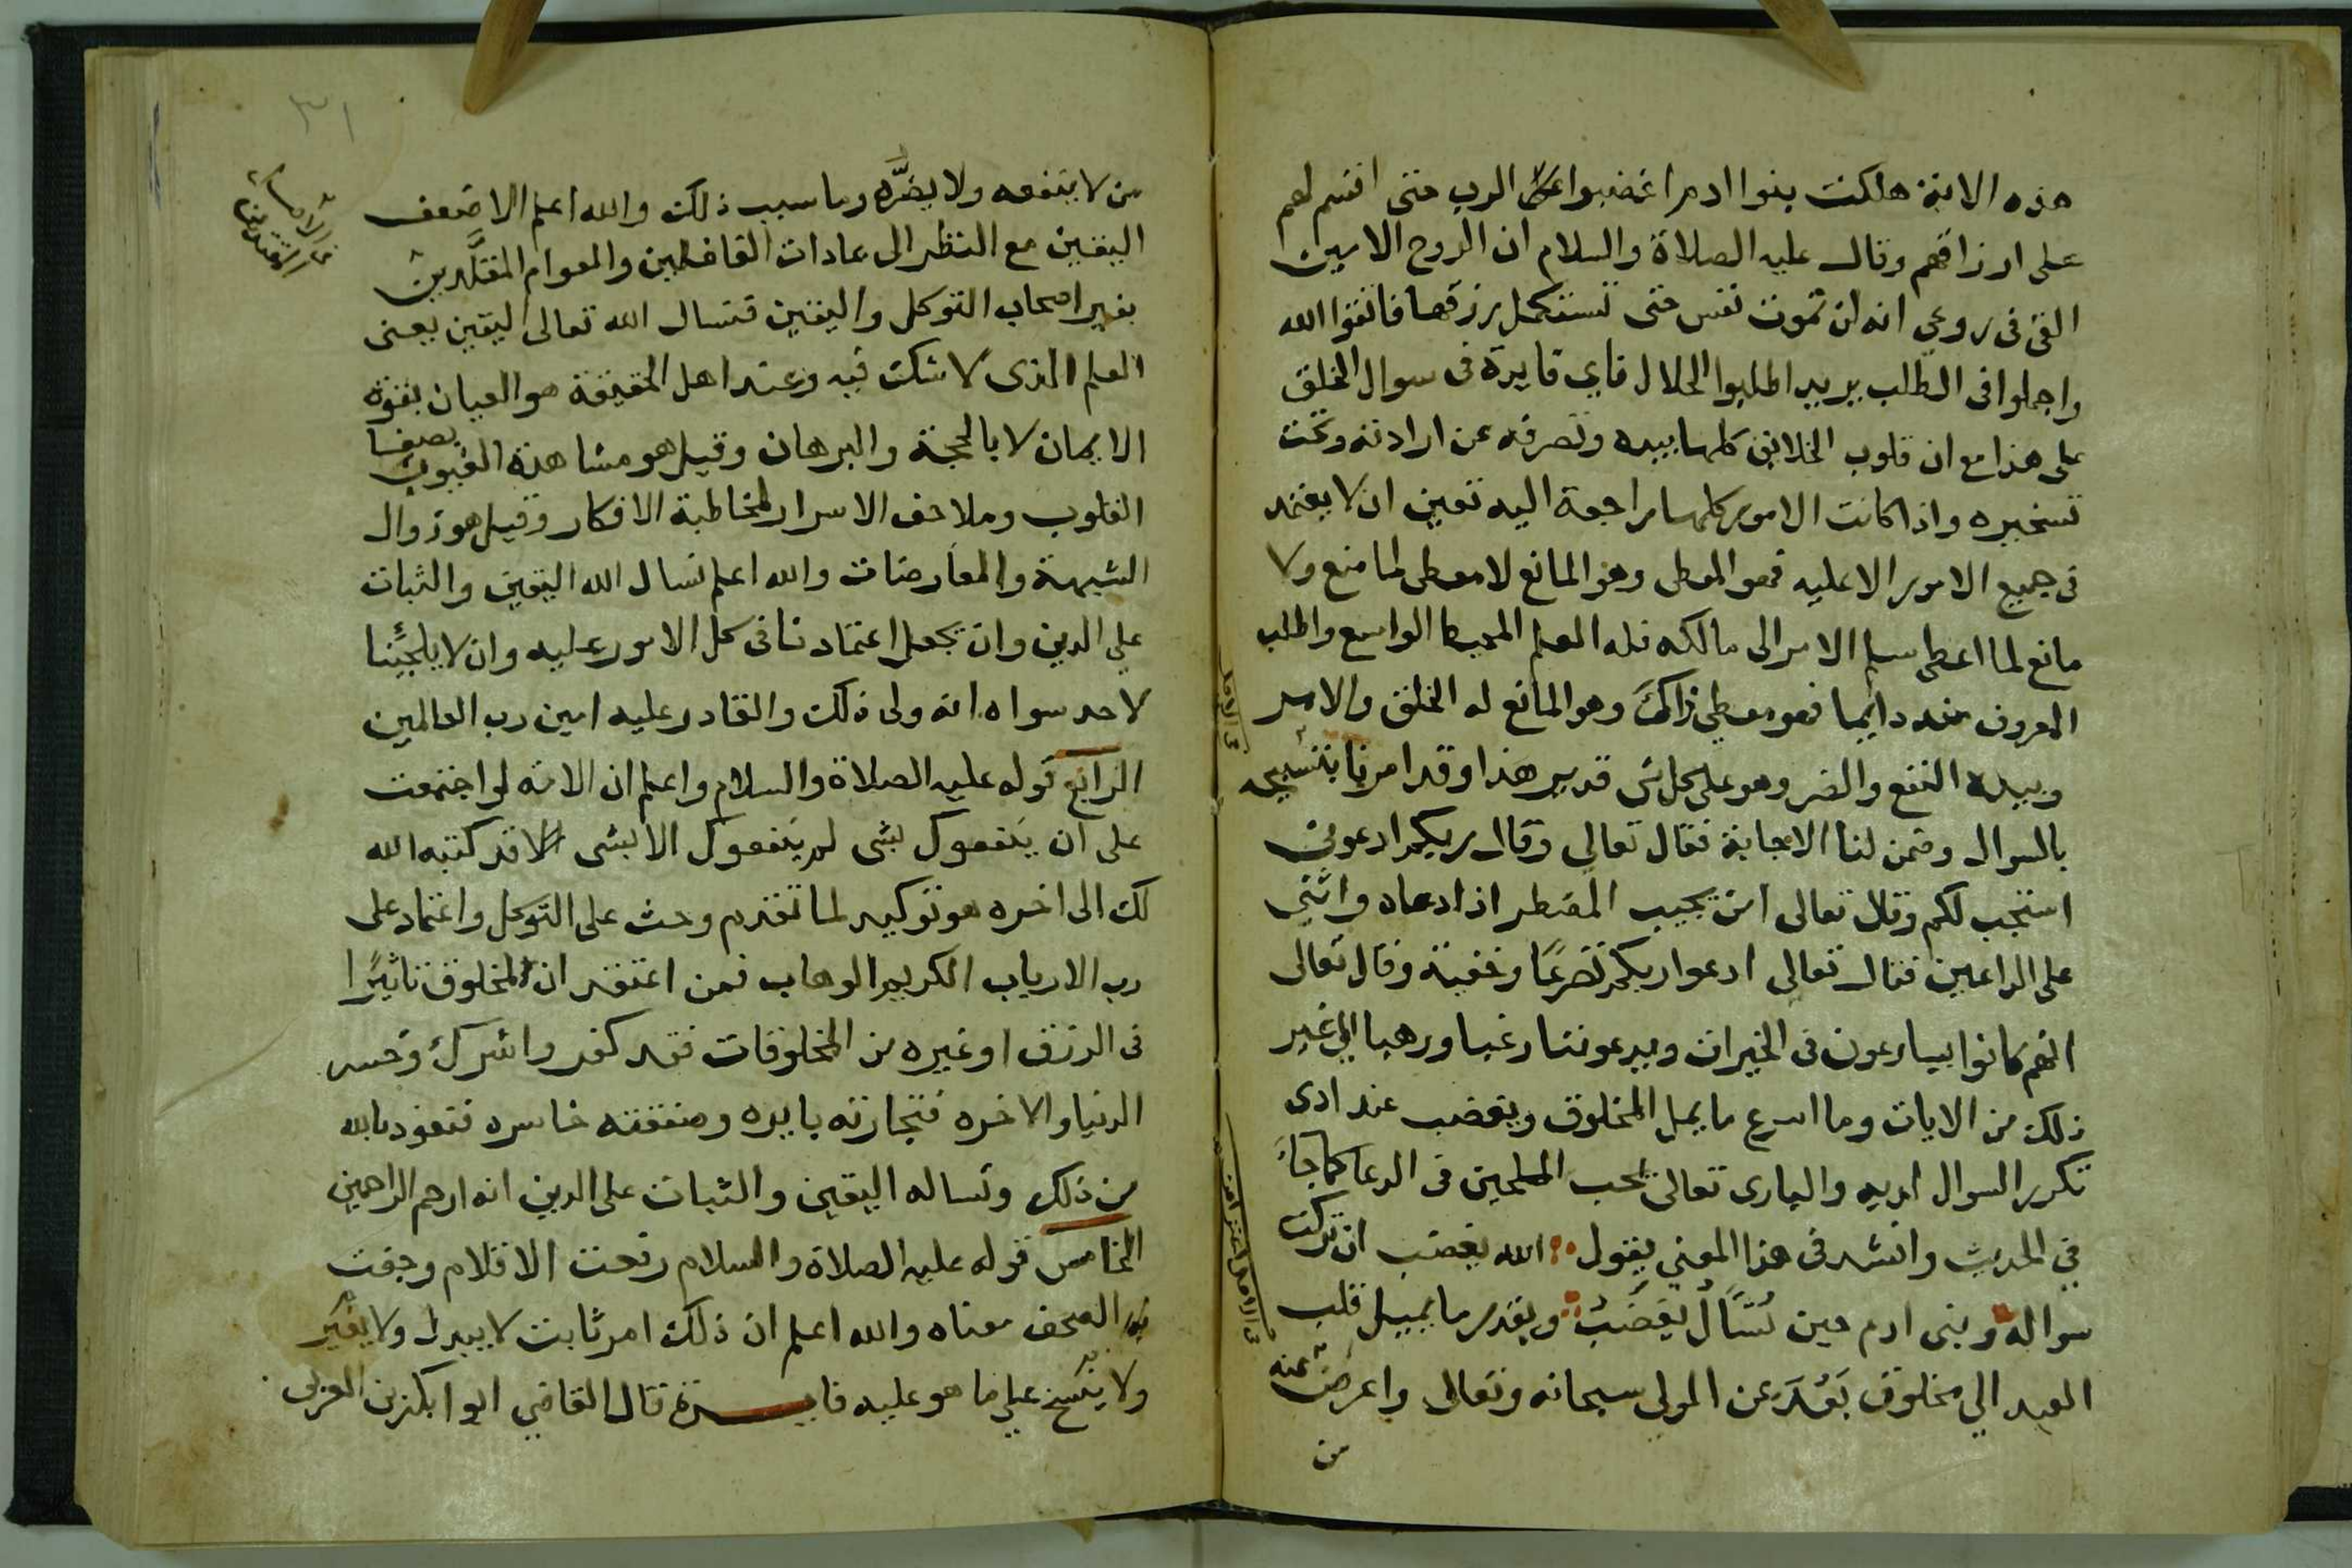 هذه الاية هلكت بنوا ادم اغضبوا الرب حتى اقسم لهم
على ارزاقهم وقال عليه الصلاة والسلام ان الروح الامين
القى فى روعي انه لن تموت نفس حتى تستكمل رزقها فاتقوا الله
واجملوا فى الطلب يريد اطلبوا الحلال فاي فايدة فى سوال الخلق
على هذا مع ان قلوب الخلايق كلها بيده وتصرفه عن ارادته وتحت
تسخيره واذا كانت الامور كلها راجعة اليه تعين ان لا يعتمد
فى جميع الامور الا عليه فهو المعطى وهو المانع لا معطى لما منع ولا
مانع لما اعطى سلم الامر الى مالكه فله العلم المحيط الواسع واطلب
المعروف منه دايما فهو معطي ذاك وهو المانع له الخلق والامر
وبيده النفع والضر وهو على كل شى قدير هذا وقد امرنا
بالسوال وضمن لنا الاجابة فقال تعالي وقال ربكم ادعونى
استجب لكم وقال تعالى امن يجيب المضطر اذا دعاه واثنى
على الداعين فقال تعالى ادعوا ربكم تضرعًا وخفية وقال تعالى
انهم كانوا يسارعون فى الخيرات ويدعوننا رغبا ورهبا الي غير
ذلك من الايات وما اسرع ما يمل المخلوق ويغضب عند ادى
تكرر السوال لديه والبارى تعالى يحب الملحين فى الدعا كما جاء
في الحديث وانشد فى هذا المعنى يقول الله يغضب ان تركت
سواله وبنى ادم حين يُسَّالُ يغضَبُ وبقدر ما يميل قلب
العبد الي مخلوق بَعُدَ عن المولي سبحانه وتعالى واعرض عنه
من
٣١
من لا ينفعه ولا يضرَّه وما سبب ذلك والله اعلم الا ضعف
اليقين مع النظر الى عادات الغافلين والعوام المقلَّدين
بغير اصحاب التوكل واليقين فنسال الله تعالى اليقين يعنى
العلم الذى لا شك فيه وعند اهل الحقيقة هو العيان بقوة
الايمان لا بالحجة والبرهان وقيل هو مشاهدة الغيوب بصفا
القلوب وملاحف الاسرار لمخاطبة الافكار وقيل هو زوال
الشبهة والمعارضات والله اعلم نسال الله اليقين والثبات
علي الدين وان يجعل اعتمادنا فى كل الامور عليه وان لا يلجئنا
لاحد سواه انه ولى ذلك والقادر عليه امين رب العالمين
الرابع قوله عليه الصلاة والسلام واعلم ان الامة لو اجتمعت
على ان ينفعوك بشى لم ينفعوك الا بشى قد كتبه الله
لك الى اخره هو توكيد لما تقدم وحث على التوكل واعتماد على
رب الارباب الكريم الوهاب فمن اعتقد ان المخلوق تاثيرًا
فى الرزق او غيره من المخلوقات فقد كفر واشرك وخسر
الدنيا والاخره فتجارته بايره وصفقته خاسره فنعوذ بالله
من ذلك ونساله اليقين والثبات على الدين انه ارحم الراحمين
الخامس قوله عليه الصلاة والسلام رفعت الاقلام وجفت
الصحف معناه والله اعلم ان ذلك امر ثابت لا يبدل ولا يغير
ولا ينسخ علي ما هو عليه فايدة قال القاضي ابوا بكر بن العربى